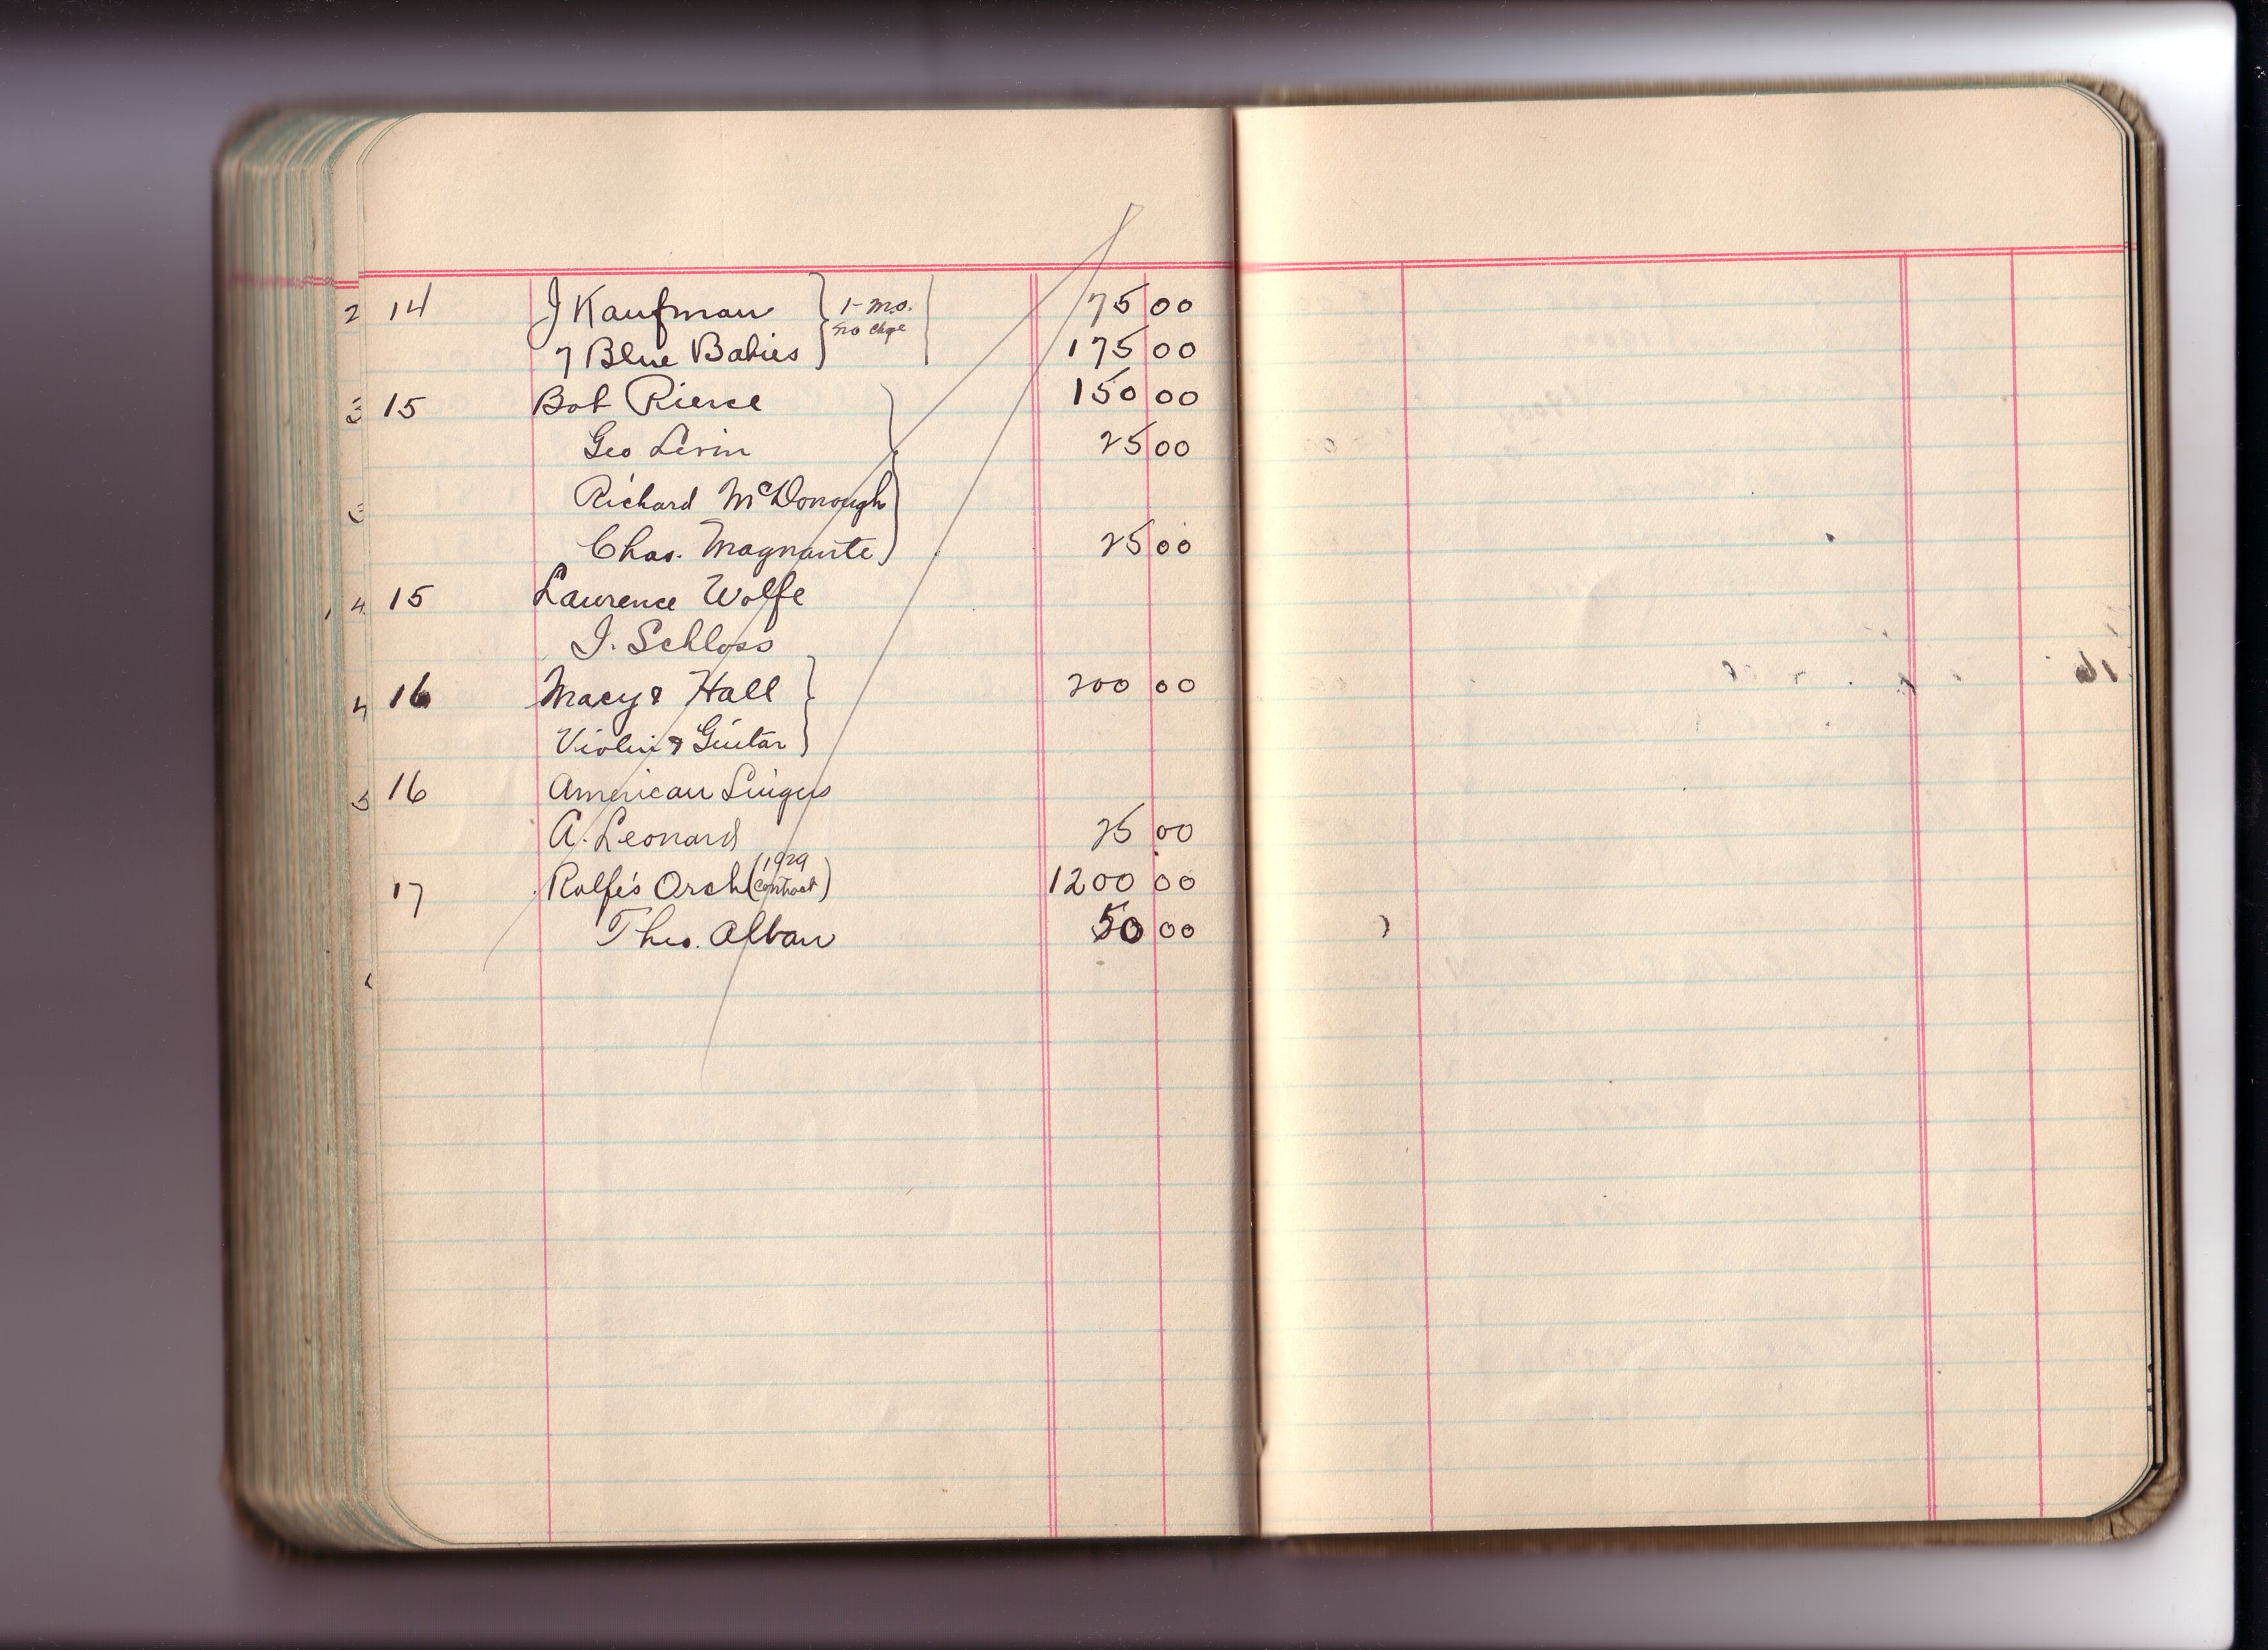 14 J Kaufman } 1-mo. 75 00
no chge
7 Blue Babies 175 00
15 Bob Pierce 150 00
Geo Levin 25 00
Richard McDonough
Chas. Magnante 25 00
15 Laurence Wolfe
I. Schloss
16 Macy & Hall 200 00
Violin & Guitar
16 American Singers
A. Leonard 25 00
17 Rolfe's Orch (1929 contract) 1200 00
Theo. Alban 50 00